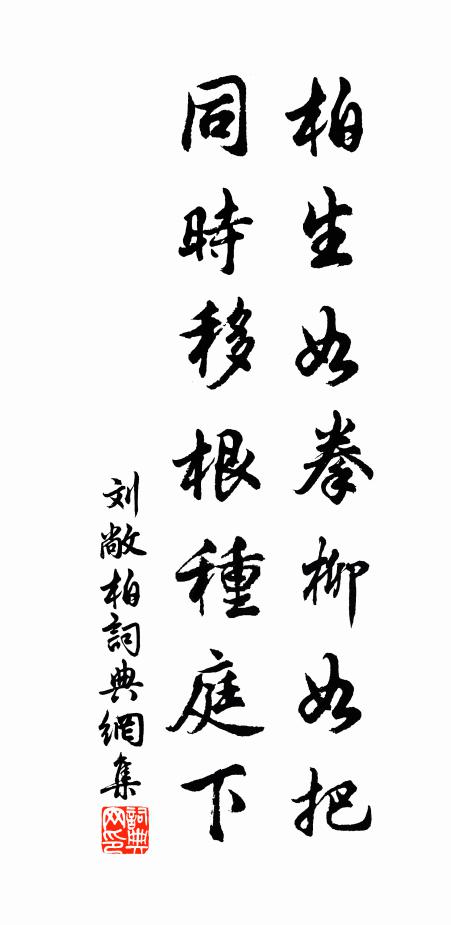 柏生如拳柳如把
同時移根種庭下
刘敞柏詞典網集
詞典网印